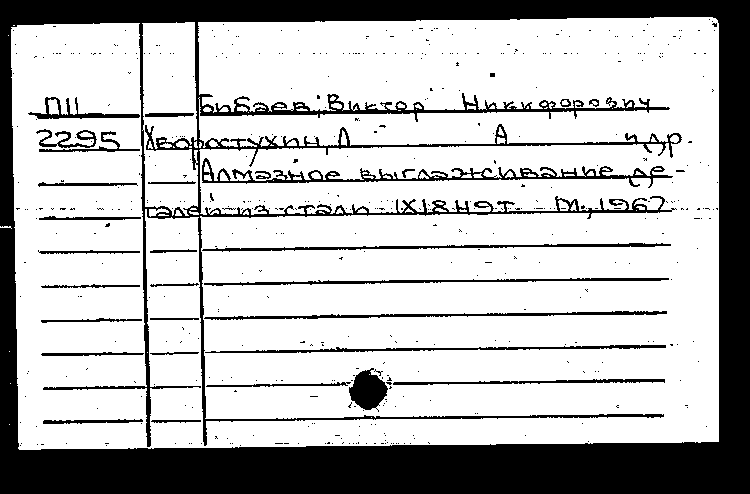 П11 Бибаев, Виктор Никифорович
2295 Хворостухин, Л А и др.
Алмазное выглаживание де-
талей из стали 1Х18Н9Т М., 1967